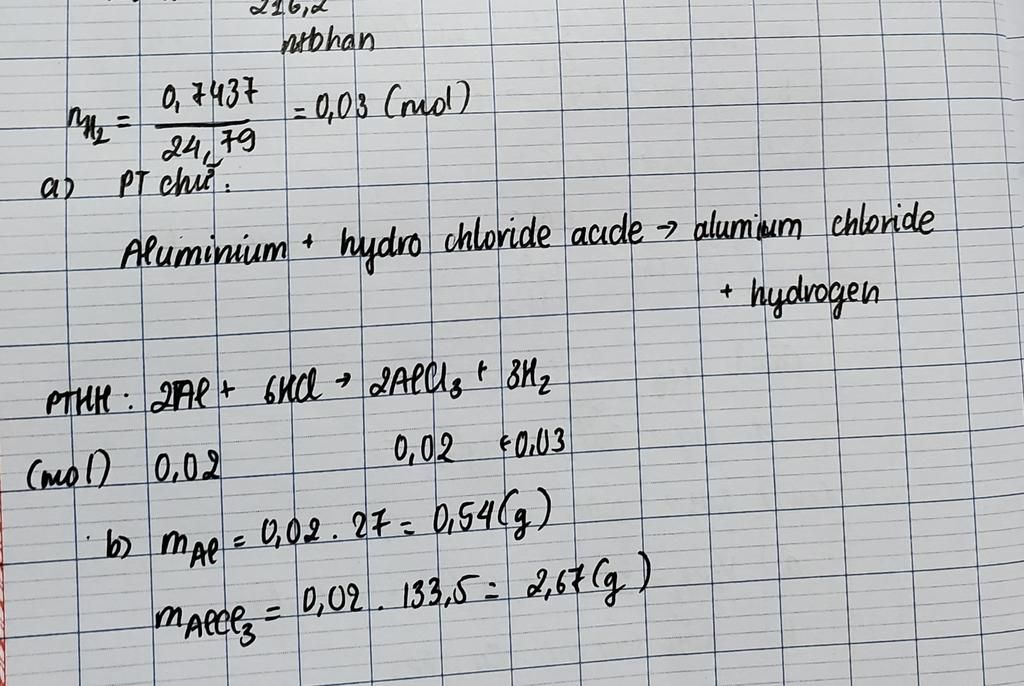 216,2
nHbhan
nH₂ = 0,7437 / 24,79 = 0,03 (mol)
a) PT chữ:
Aluminium + hydro chloride acide → alumium chloride
+ hydrogen
PTHH: 2Al + 6HCl → 2AlCl₃ + 3H₂
(mol) 0,02 0,02 ←0,03
b) mAl = 0,02 . 27 = 0,54(g)
mAlCl₃ = 0,02 . 133,5 = 2,67(g)